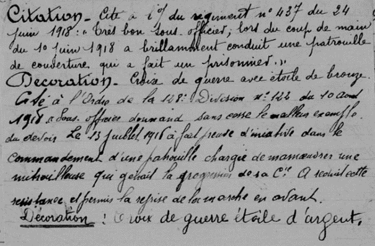 Citation - Cité à l'of du régiment n° 437 du 24
juin 1918: " Très bon sous officier, lors du coup de main
du 10 juin 1918 a brillamment conduit une patrouille
de couverture qui a fait un prisonnier. "
Decoration - Croix de guerre avec étoile de bronze
Cité à l'Ordre de la 128e Division n° 122 du 10 août
1918 " Sous officier donnant sans cesse le meilleur exemple
du devoir. Le 23 juillet 1918 a fait preuve d'initiative dans le
commandement d'une patrouille chargée de manoeuvrer une
mitrailleuse qui gênait la progression de sa Cie. A réduit cette
resistance, et permis la reprise de la marche en avant.
Décoration : Croix de guerre étoile d'argent.